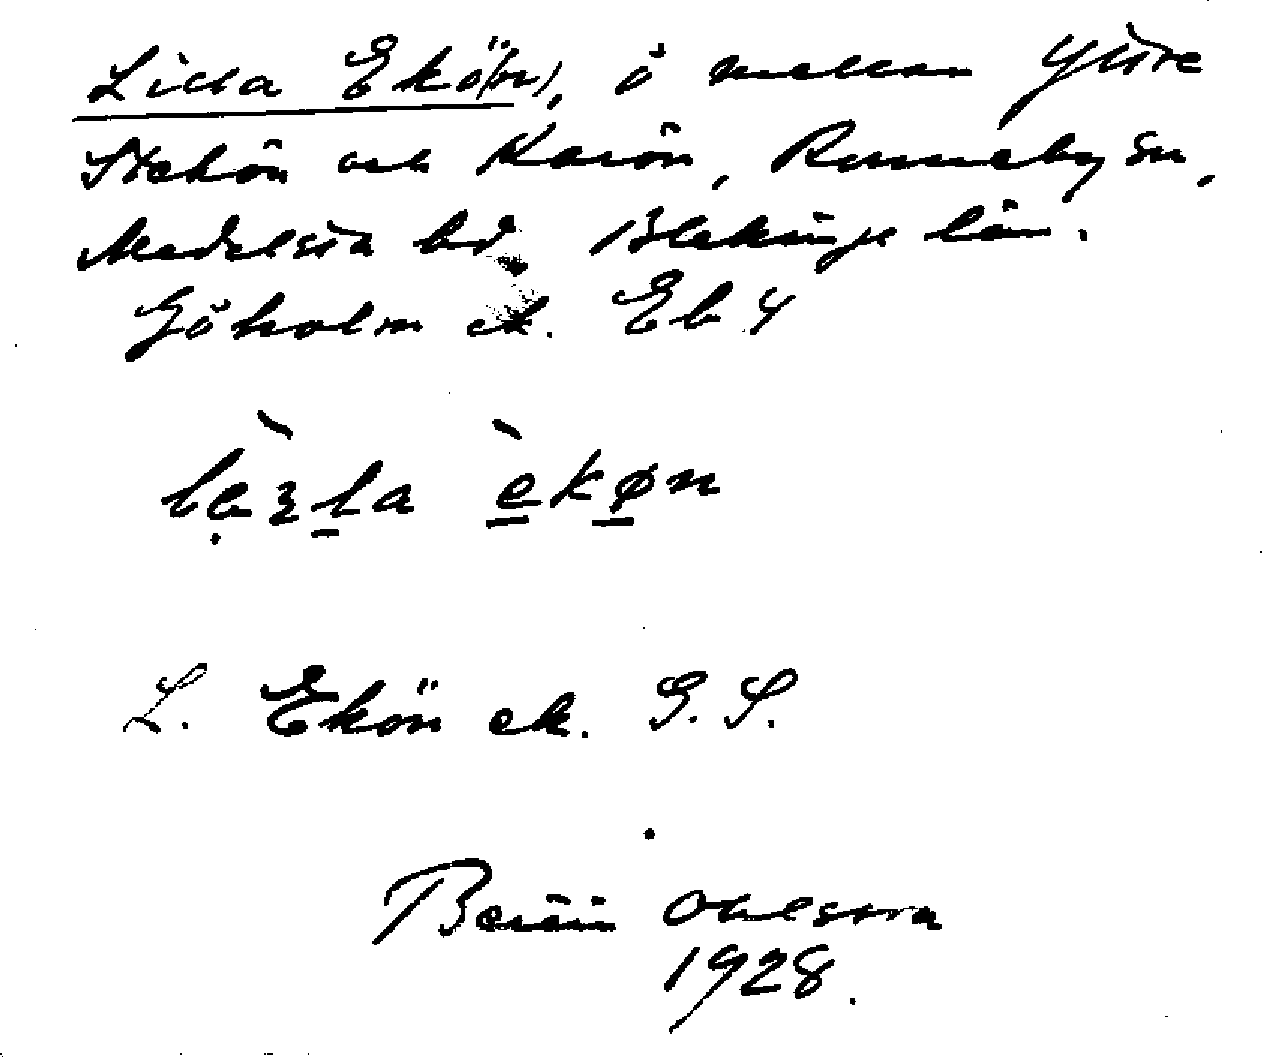 Lilla Ekö(n), ö mellan Yttre
Stekön och Karön, Ronneby sn,
Medelsta hd, Blekinge län.
Göholm ek. Eb 4
L. Ekön ek. G. S.
Ohlsson
1928.